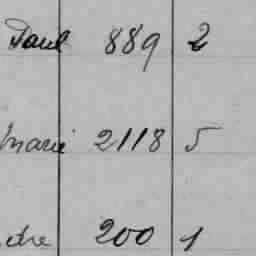 Paul 889 2
Marie 2118 5
dre 200 1